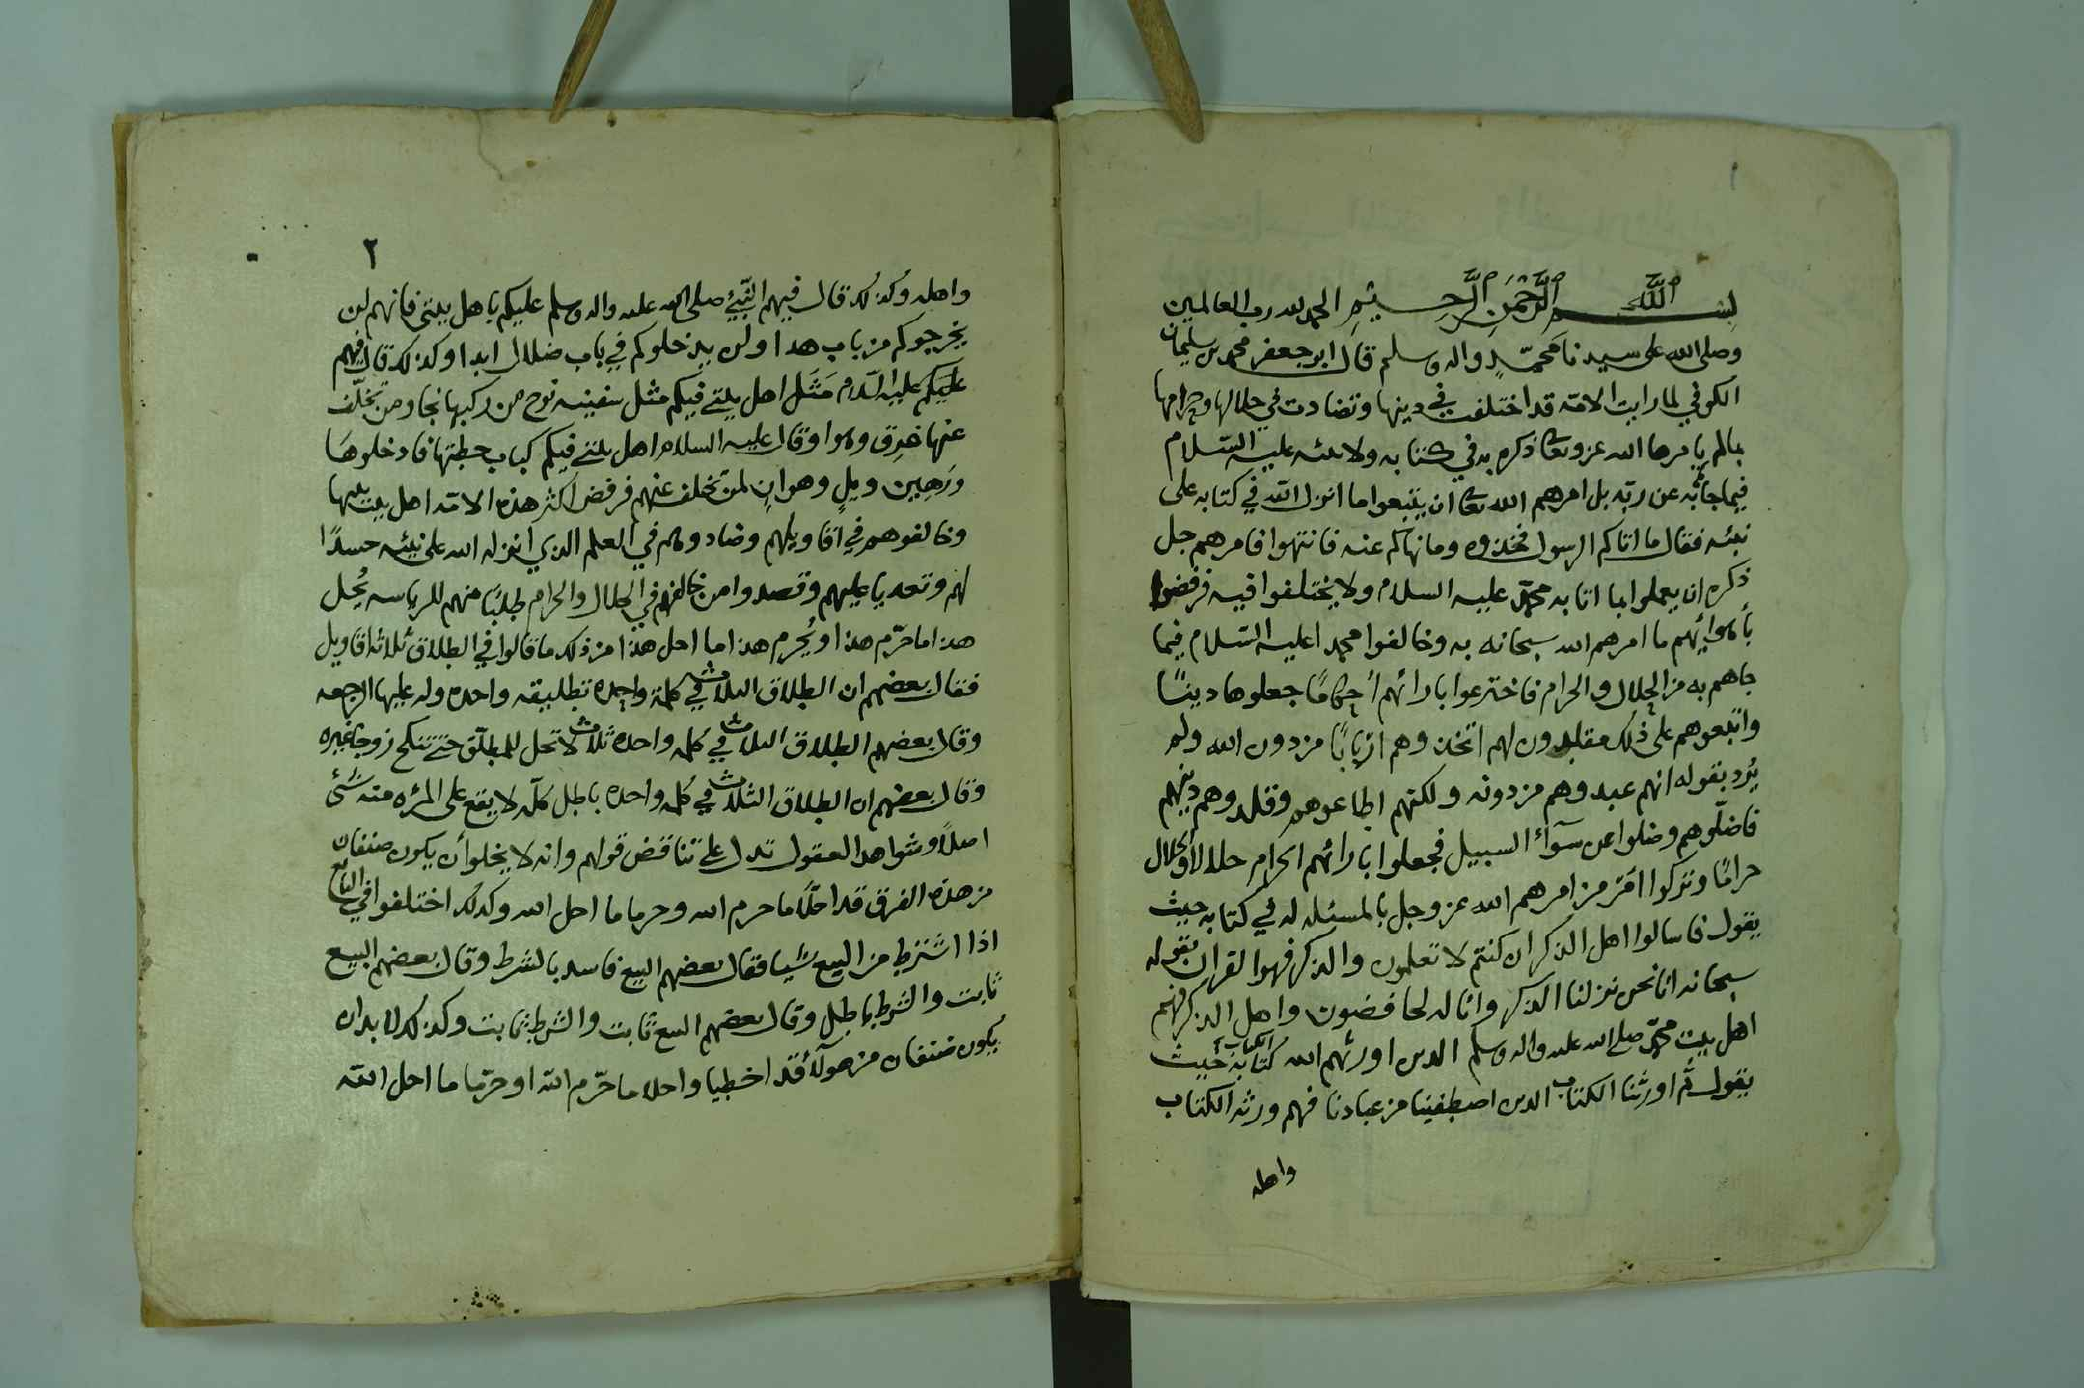 بسم الله الرحمن الرحيم الحمد لله رب العالمين
وصلى الله على سيدنا محمّدٍ واله وسلم قال ابو جعفر محمد بن سليمان
الكوفي لما رايت الامّه قد اختلفت في دينها وتضادت في حلالها وحرامها
بمالم يامرها الله عز وتعا ذكره به في كتابه ولا نبيّه عليه السّلام
فيما جاء به عن ربّه بل امرهم الله تعا ان يتبعوا ما انزل الله في كتابه على
نبيّه فقال ما اتاكم الرسول فخذوه وما نهاكم عنه فانتهوا فامرهم جل
ذكره ان يعملوا بما اتا به محمّد عليه السلام ولا يختلفوا فيه فرفضوا
بأهوائهم ما امرهم الله سبحانه به وخالفوا محمدا عليه السّلام فيما
جاهم به من الحلال والحرام فاخترعوا بارائهم احكامًا جعلوها دينًا
واتبعوهم على ذلك مقلدون لهم اتخذوهم اربابًا من دون الله ولم
يُرد بقوله انهم عبدوهم من دونه ولكنهم اطاعوهم وقلدوهم دينهم
فاضلّوهم وضلوا عن سوآء السبيل فجعلوا بارائهم الحرام حلالا والحلال
حرامًا وتركوا امر من امرهم الله عز وجل بالمسئله له في كتابه حيث
يقول فاسالوا اهل الذكر ان كنتم لا تعلمون والذكر فهو القران بقوله
سبحانه انا نحن نزلنا الذكر وانا له لحافضون واهل الذكر فهم
اهل بيت محمّد صلى الله عليه واله وسلم الذين اورثهم الله كتابه حيث
يقول ثم اورثنا الكتاب الذين اصطفينا من عبادنا فهم ورثه الكتاب
واهله
٢
واهله وكذلك قال فيهم النّبيّ صلى الله عليه واله وسلم عليكم باهل بيتي فانهم لن
يخرجوكم من باب هدا ولن يدخلوكم في باب ضلال ابدا وكذلك قال فيهم
عليه السّلام مَثَل اهل بيتي فيكم مثل سفينه نوح من ركبها نجا ومن تخلّف
عنها غرِق وهوا وقال عليه السلام اهل بيتي فيكم كباب حطة فادخلوها
وهوانٍ لمن تخلف عنهم فرفض اكثر هذه الامّه اهل بيت نبيها
وخالفوهم في اقاويلهم وضادوهم في العلم الذي انزله الله على نبيّه حسدًا
لهم وتعديا عليهم وقصدوا من خالفهم في الحلال والحرام طلبًا منهم للرياسه يُحِل
هذا ما حرّم هذا ويُحرم هذا ما احل هذا من ذلك ما قالوا في الطلاق ثلاثه اقاويل
فقال بعضهم ان الطلاق الثلاث في كلمة واحده تطليقه واحده وله عليها الرجعه
وقال بعضهم الطلاق الثلاث في كلمه واحده ثلاث لا تحل للمطلّق حتى تنكح زوجا غيره
وقال بعضهم ان الطلاق الثلاث في كلمه واحده باطل كلّه لا يقع على المرءه منه شئ
اصلاً وشواهد العقول تدل على تناقض قولهم وانه لا يخلو أن يكون صنفان
من هذه الفرق قد احلّا ما حرم الله وحرما ما احل الله وكذلك اختلفوا في البايع
اذا اشترط من البيع شيا فقال بعضهم البيع فاسد بالشرط وقال بعضهم البيع
ثابت والشرط باطل وقال بعضهم البيع ثابت والشرط ثابت وكذلك لا بد ان
يكون صنفان من هولآء قد اخطيا واحلا ما حرّم الله او حرّما ما احل الله